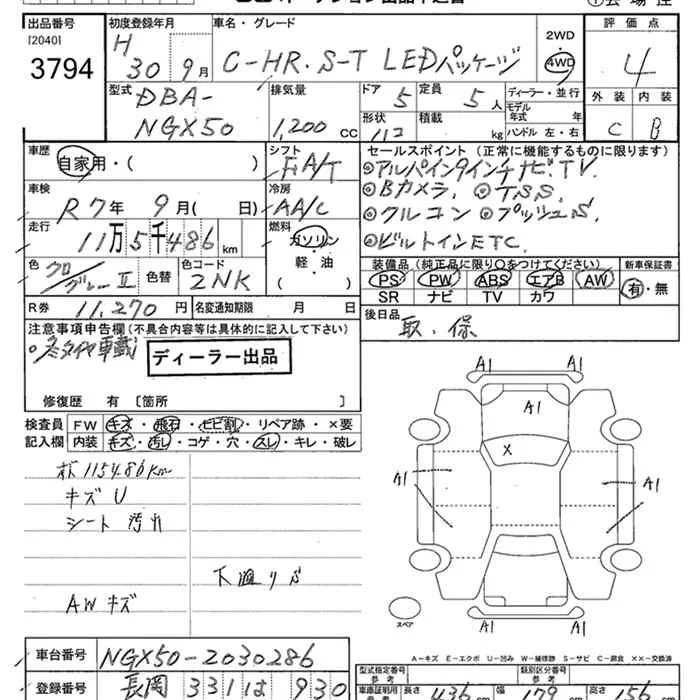 出品番号
[2040]
3794
初度登録年月
H 30 9月
車名・グレード
C-HR. S-T LEDパッケージ
2WD
4WD
評価点
4
型式
DBA-
NGX50
排気量
1,200 cc
ドア
5
定員
5人
ディーラー・並行
モデル
年式 年
形状
積載
kg
ハンドル 左・右
外装 内装
C B
車歴
自家用・( )
シフト
FA/T
セールスポイント (正常に機能するものに限ります)
◎アルパイン9インチナビ.TV.
◎Bカメラ. ◎TSS.
◎クルコン ◎プッシュS.
◎ビルトインETC.
車検
R7年 9月( 日)
冷房
AA/C
走行
11万5千486km
燃料
ガソリン
軽・油
( )
色
クロ/グレーII
色替
色コード
2NK
装備品(純正品に限り○をつけてください)
PS PW ABS エアB AW
SR ナビ TV カワ
新車保証書
有・無
R券 11,270円
名変通知期限 月 日
後日品
取、保
注意事項申告欄(不具合内容等は具体的に記入して下さい)
○冬タイヤ車載
ディーラー出品
修復歴 有 〔箇所 〕
検査員
記入欄
FW キズ・飛石・ヒビ割・リペア跡・×要
内装 キズ・汚レ・コゲ・穴・スレ・キレ・破レ
115486km
キズU
シート 汚れ
下廻りS
AW キズ
A1 A1
A1
X
A1 A1
A1 A1
スペア
A-キズ E-エクボ U-凹み W-補修跡 S-サビ C-腐食 ××-交換済
車台番号
NGX50-2030286
登録番号
長岡 331 は 930
型式指定番号
参考
類別区分番号
参考
車庫証明用
参考
長さ 436 cm
幅 179 cm
高さ 156 cm